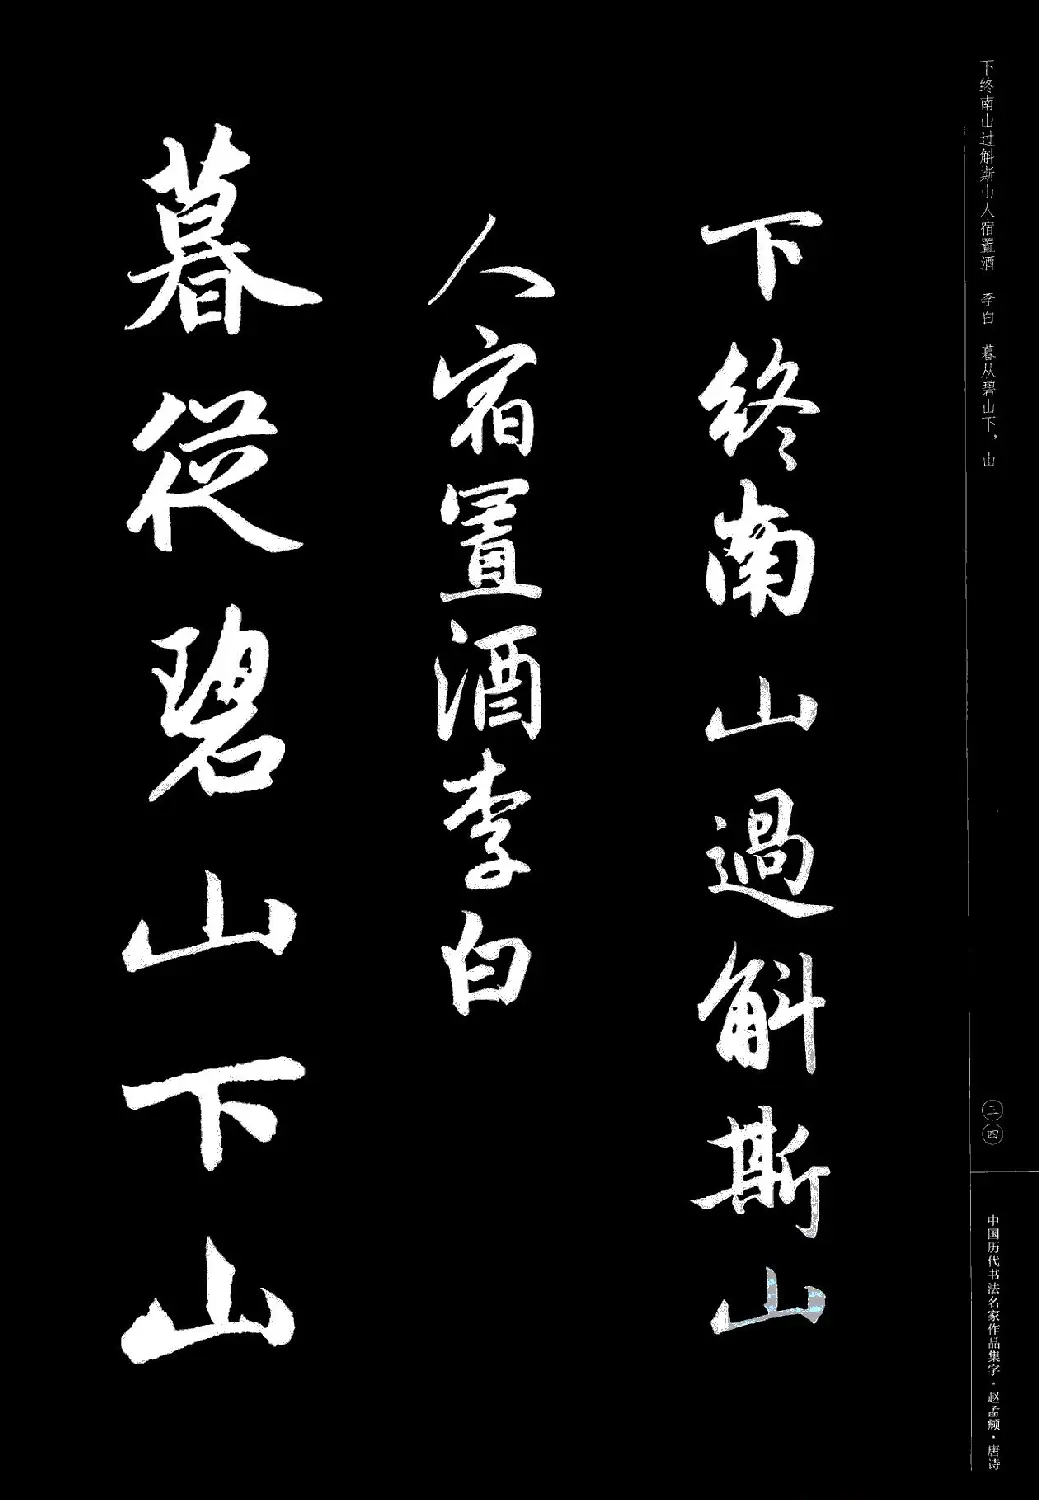 下终南山过斛斯山人宿置酒 李白 暮从碧山下，山
下終南山過斛斯山
人宿置酒李白
暮從碧山下山
三四
中国历代书法名家作品集字·赵孟頫·唐诗